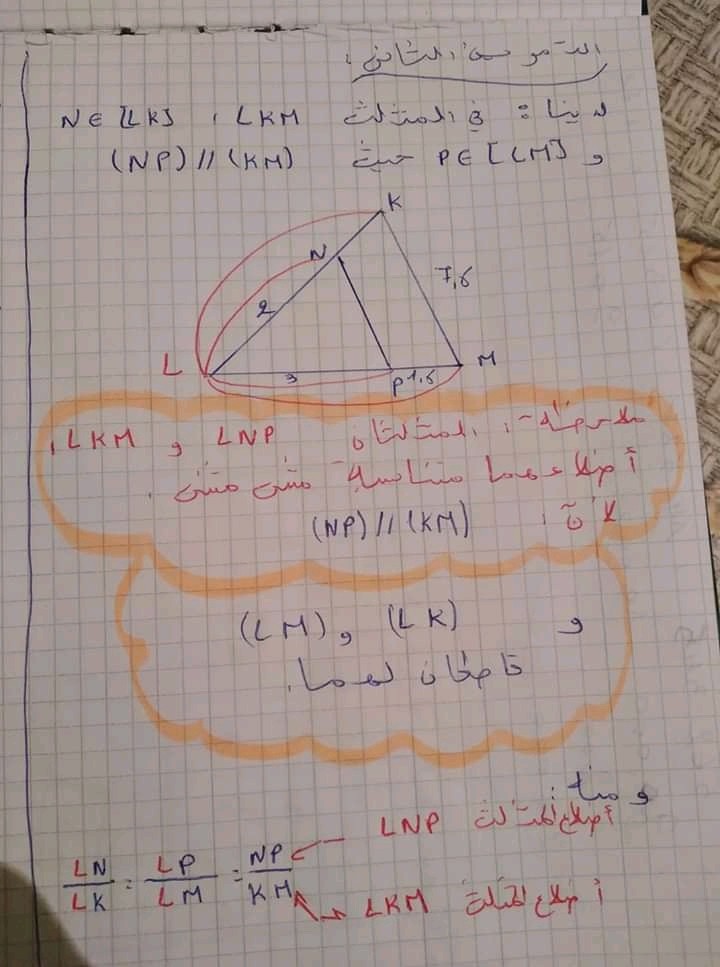 التموسعة الثاني :
لدينا : في المثلث LKM ، N ∈ [LK]
و P ∈ [LM] حيث (NP) // (KM)
K
N
7,6
2
L
3
P
1,6
M
ملاحظة : المثلثان LNP و LKM ،
أضلاعهما متناسبة مثنى مثنى .
لأنّ : (NP) // (KM)
و (LK) و (LM)
قاطعان لهما .
ومنه :
أضلاع المثلث LNP
LN/LK = LP/LM = NP/KM
أضلاع المثلث LKM